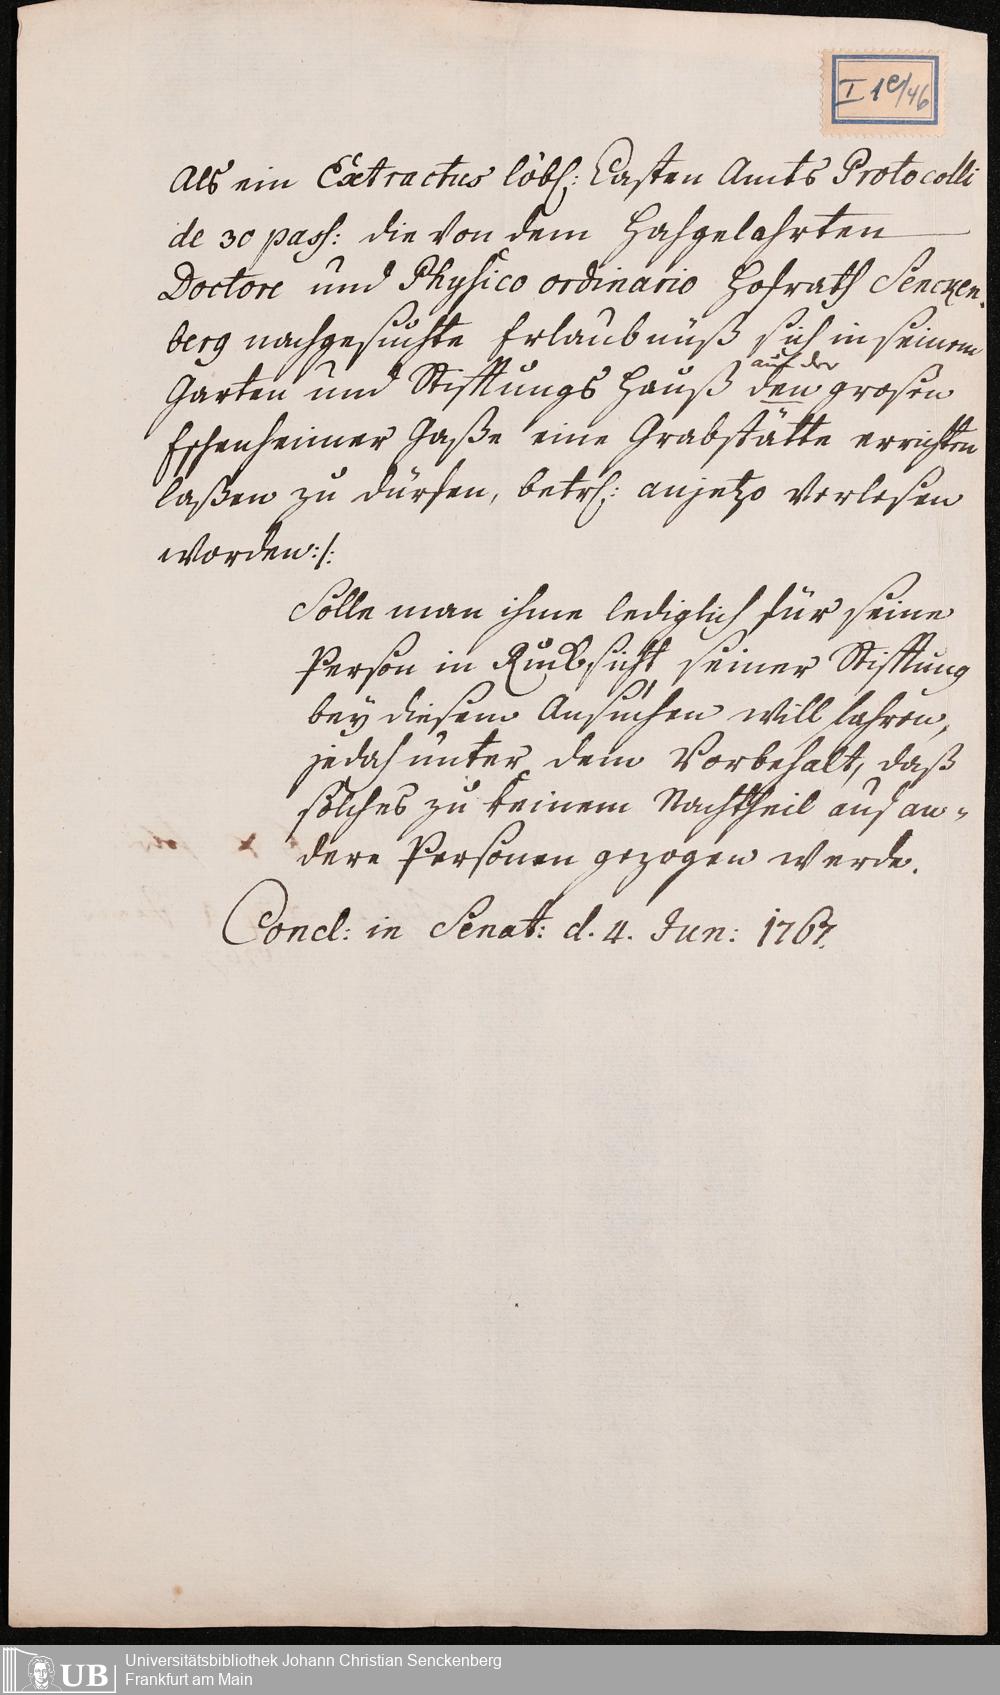 I 1e/46
Als ein Extractus löbl: Casten Amts Protocolli
de 30 pass: die von dem Hochgelahrten
Doctore und Physico ordinario Hofrath Sencken-
berg nachgesuchte Erlaubnüß sich in seinem
auf der
Garten und Stifftungs Hauß den grosen
Eschenheimer Gaße eine Grabstätte errichten
laßen zu dürfen, betrf: anjetzo verlesen
worden:/:
Solle man ihme lediglich für seine
Person in Rucksicht seiner Stifftung
bey diesem Ansuchen will fahren,
jedoch unter dem Vorbehalt, daß
solches zu keinem Nachtheil auf an-
dere Personen gezogen werde.
Concl: in Senat: d. 4. Jun: 1767.
UB
Universitätsbibliothek Johann Christian Senckenberg
Frankfurt am Main